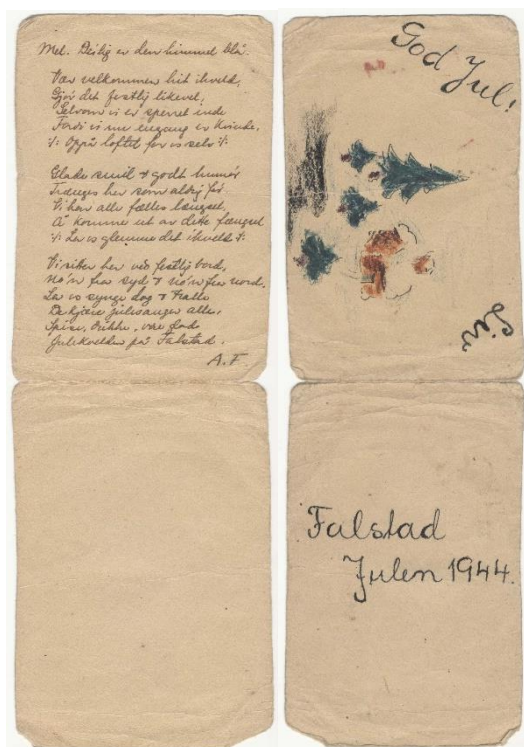 Mel. Deilig er den himmel blå.
Vær velkommen hit ikveld,
Gjør det festlig likevel,
Selvom vi er sperret inde
Fordi vi nu engang er kvinde,
:/: Oppå loftet for os selv :/:
Glade smil & godt humør
Trænges her som aldrig før
Vi har alle fælles længsel,
Å komme ut av dette fængsel
:/: La os glemme det ikveld :/:
Vi sitter her ved festlig bord,
No'n fra syd & no'n fra nord.
La os synge dog & tralle
De kjære julesanger alle,
Spise, drikke, være glad
Julekvelden på Falstad.
A.F.
God Jul!
Falstad
Julen 1944.